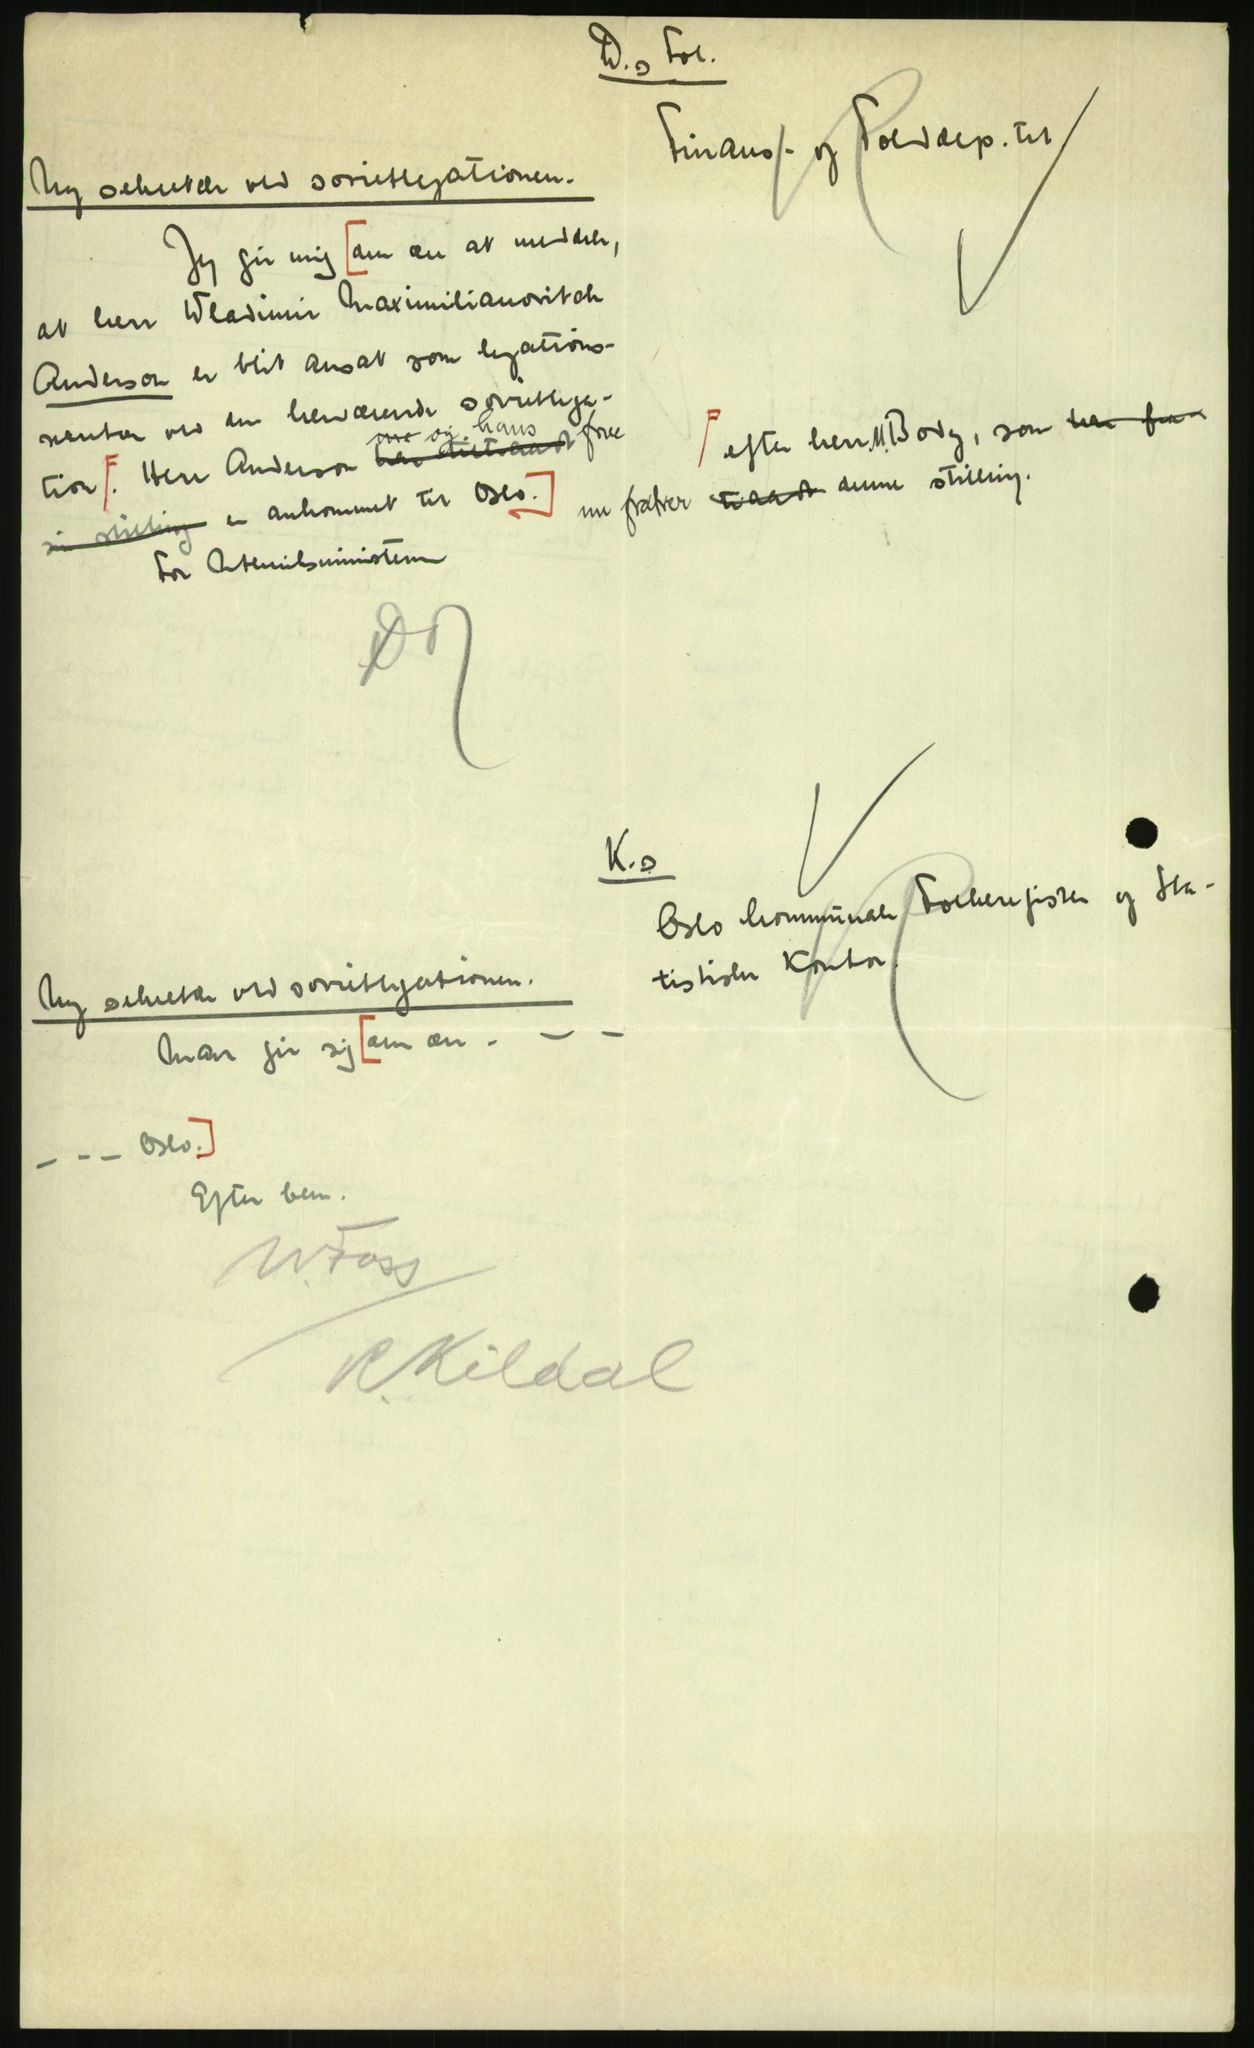 D.s Fol.
Finans- og Tolddep.tet
Ny sekretær ved sovietlegationen.
Jeg gir mig [den ære at meddele,
at herr Wladimir Maximilianovitch
Anderson er blit ansat som legations-
sekretær ved den herværende sovietlega-
tion Γ. Herr Anderson har tiltraadt
og hans frue
sin stilling er ankommet til Oslo.]
Γ efter herr M. Body, som har fra
nu fratrer traadt denne stilling.
For Utenriksministeren
K.s
Oslo kommunale Folkeregister og Sta-
tistiske Kontor.
Ny sekretær ved sovietlegationen.
Man gir sig [den ære - - -
- - - Oslo.]
Efter bem.
W. Foss
R. Kildal